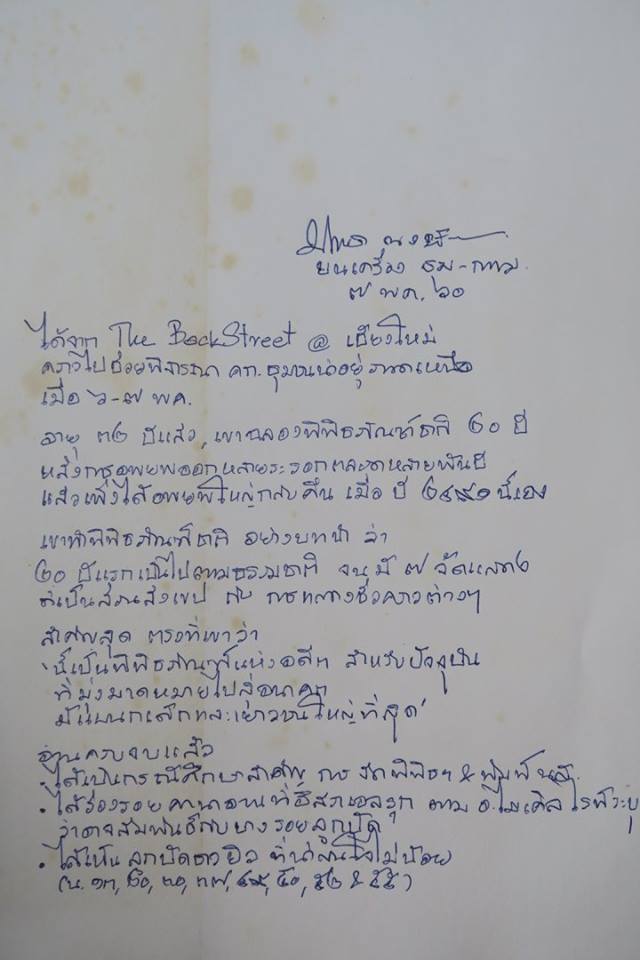 บนเครื่อง ธุม-กทม.
๗ พค. ๖๐
ได้จาก The BackStreet @ เชียงใหม่
คราวไปช่วยพิจารณา คก. ชุมชนน่าอยู่ภาคเหนือ
เมื่อ ๖-๗ พค.
อายุ ๓๒ ปีแล้ว, เขาฉลองพิพิธภัณฑ์ชาติ ๒๐ ปี
หลังการอพยพออกหลายระรอกตลอดหลายพันปี
แล้วเพิ่งได้อพยพใหญ่กลับคืน เมื่อ ปี ๒๔๙๑ นี้เอง
เขาทำพิพิธภัณฑ์ชาติ อย่างบทนำ ว่า
๒๐ ปีแรกเป็นไปตามธรรมชาติ จนมี ๗ จัดแสดง
ที่เป็นสวนสังเขป กับ การกลางชั่วคราวต่างๆ
สำคัญสุด ตรงที่เขาว่า
'นี้เป็นพิพิธภัณฑ์แห่งอดีต สำหรับปัจจุบัน
ที่มุ่งมาดหมายไปสู่อนาคต
มีแผนกเด็กและเยาวชนใหญ่ที่สุด'
อ่านครบจบแล้ว
• ได้เป็นกรณีศึกษาสำคัญ การจัดพิพิธฯ &
• ได้ร่องรอย คานาอาน ที่อิสราเอลรุก ตาม อ.ไมเคิล ไรท์ระบุ
ว่าอาจสัมพันธ์กับบางรอยลูกปัด
• ได้เห็น ลูกปัดชาวยิว ที่น่าสนใจไม่น้อย
(น. ๑๓, ๒๐, ๓๐, ๓๗, ๔๙, ๕๐, ๕๒ & ๕๕)